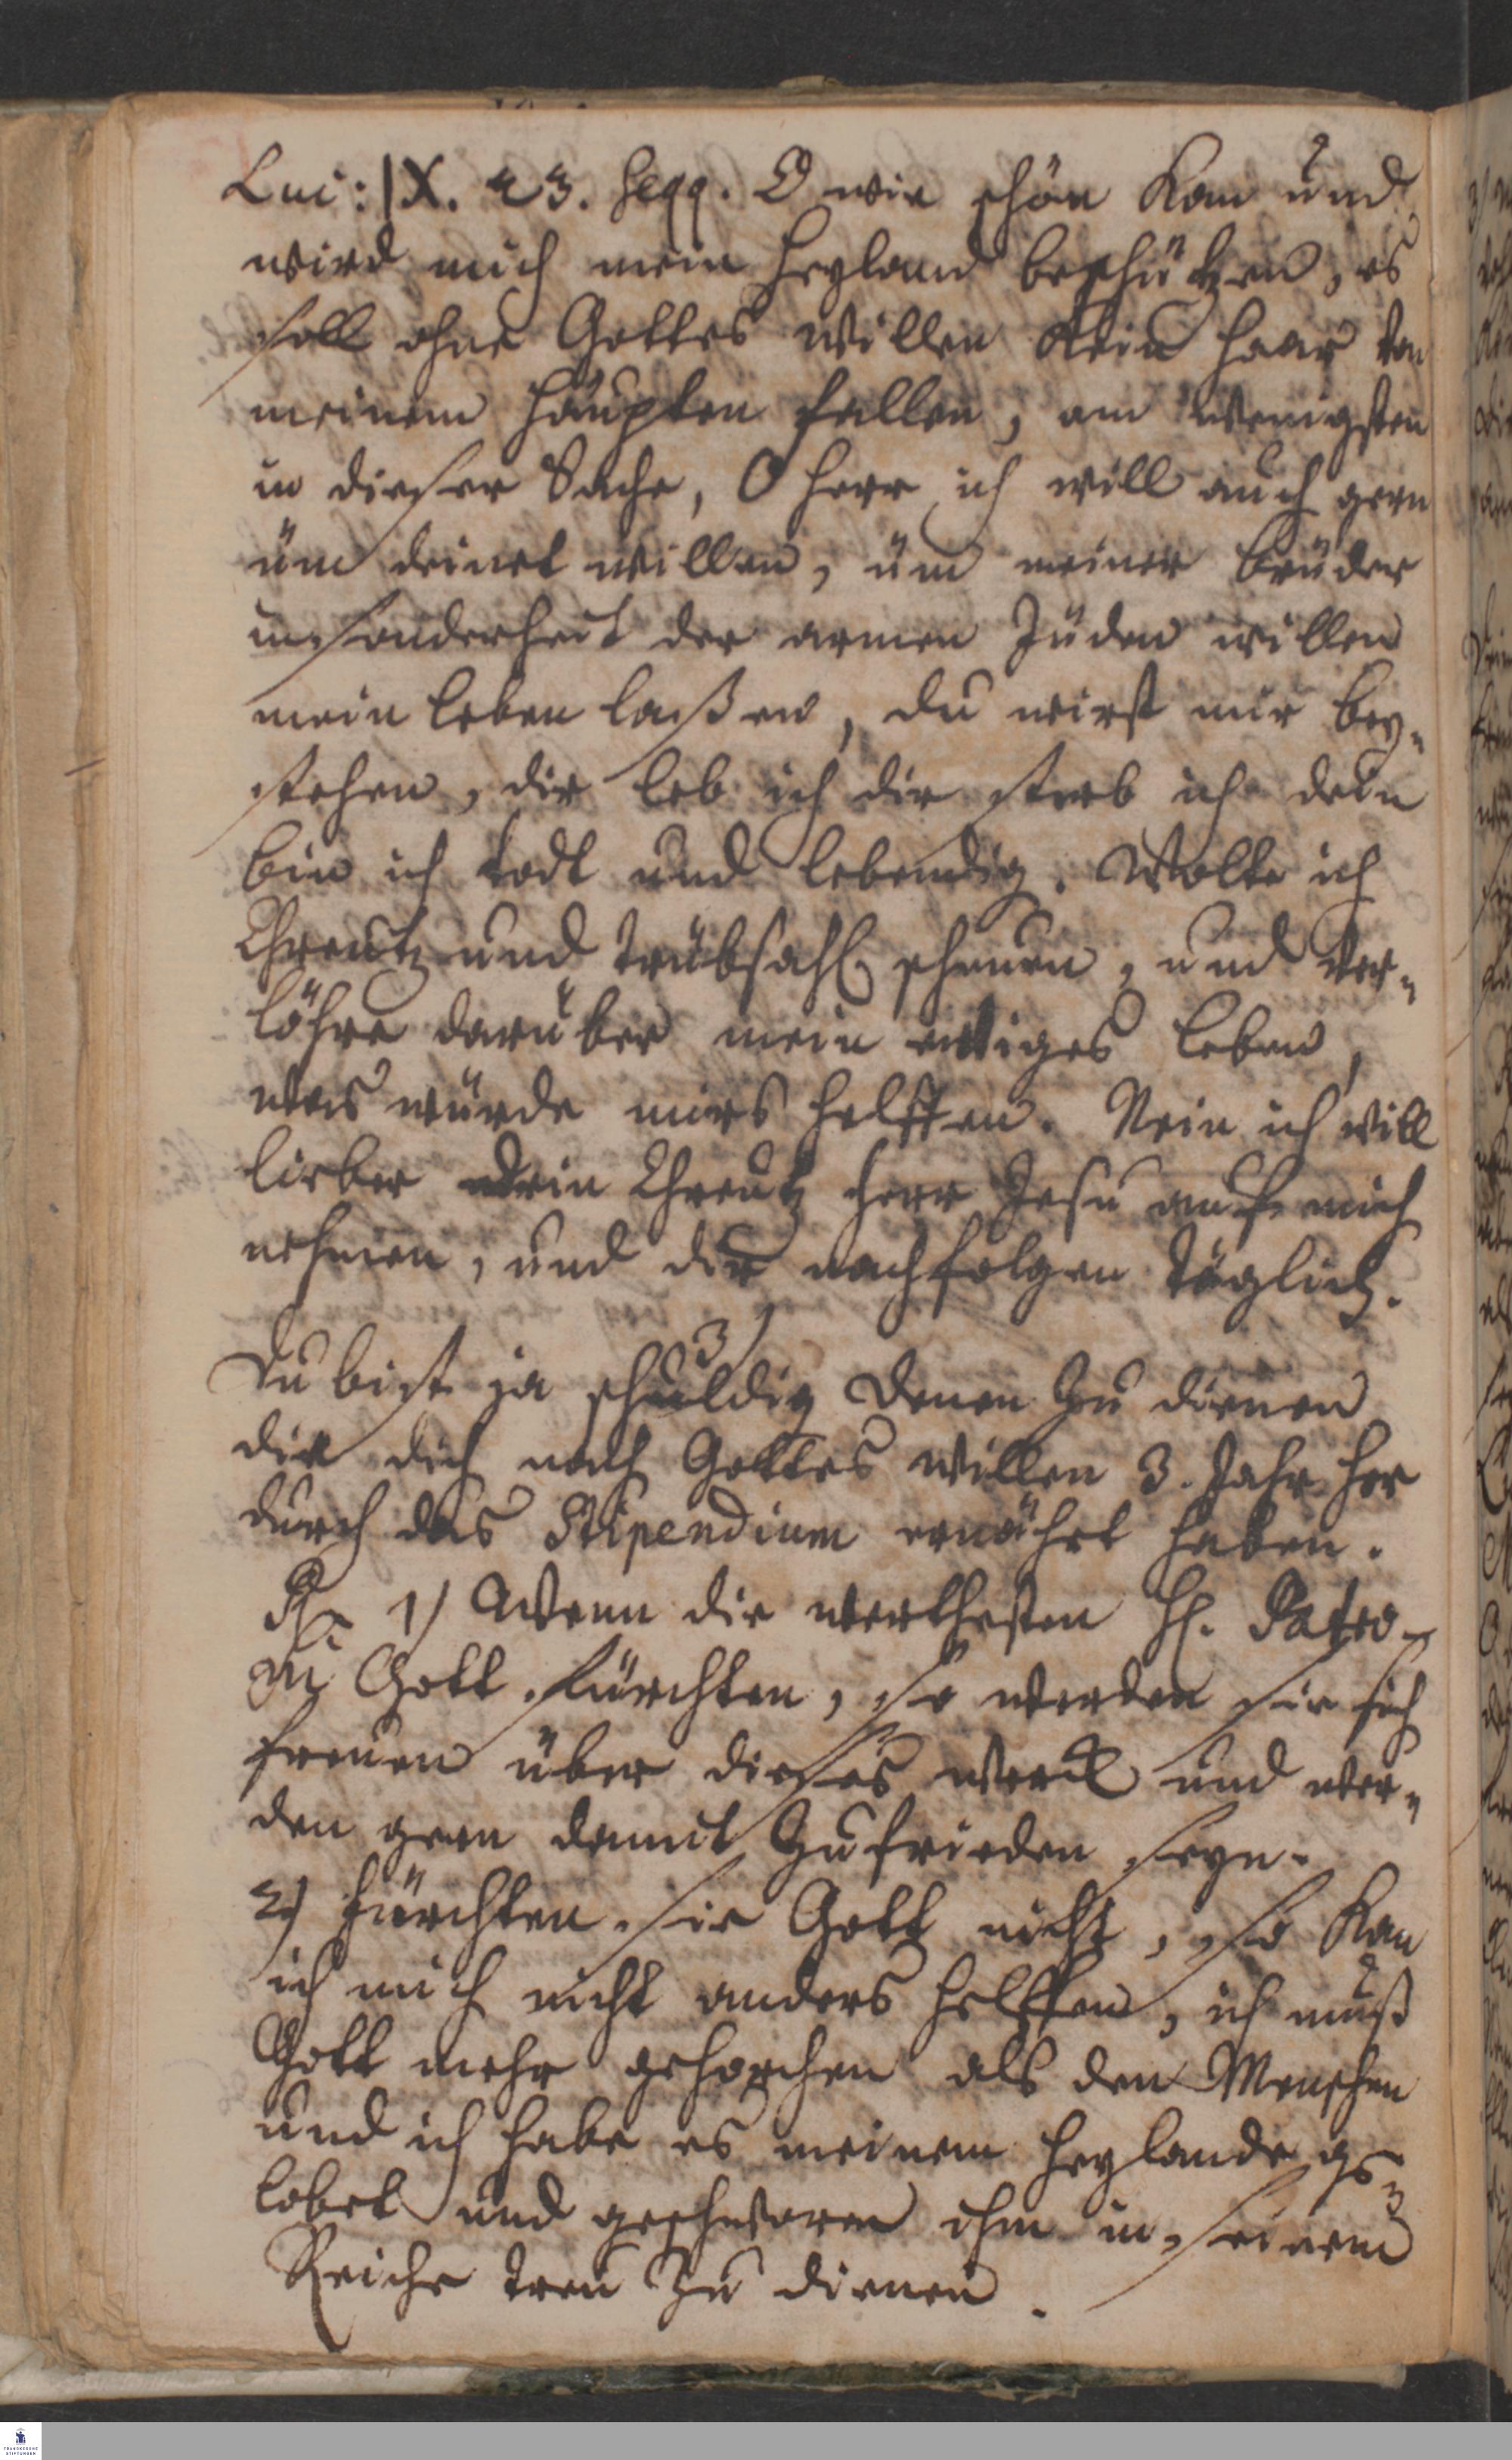 Luc: IX. 23. seqq. O wie schön kan und
wird mich mein Heyland beschützen, es
soll ohne Gottes willen kein Haar von
meinem Häupten fallen, am wenigsten
in dieser Sache, O Herr ich will auch gern
üm deinet willen, üm meiner brüder
insonderheit der armen Jüden willen
mein leben laßen, du wirst mir bey-
stehen, dir leb ich dir sterb ich dein
bin ich todt und lebendig. Wolte ich
Chreutz und trübsahl scheuen, und ver-
löhre darüber mein ewiges leben,
was würde mirs helffen. Nein ich will
lieber dein Chreutz Herr Jesu auf mich
nehmen, und dir nachfolgen täglich.
3)
Du bist ja schuldig denen zu dienen
die dich nach Gottes willen 3. Jahr her
durch das Stipendium ernährt haben.
Rx. 1) Wenn die werthesten HH. Patro-
ni Gott fürchten, so werden sie sich
freuen über dieses werck und wer-
den gern damit zufrieden seyn.
2) fürchten sie Gott nicht, so kan
ich mich nicht anders helffen, ich muß
Gott mehr gehorchen als den Menschen
und ich habe es meinem Heylande ge-
lobet und geschworen ihm in seinem
Reiche treu zu dienen.